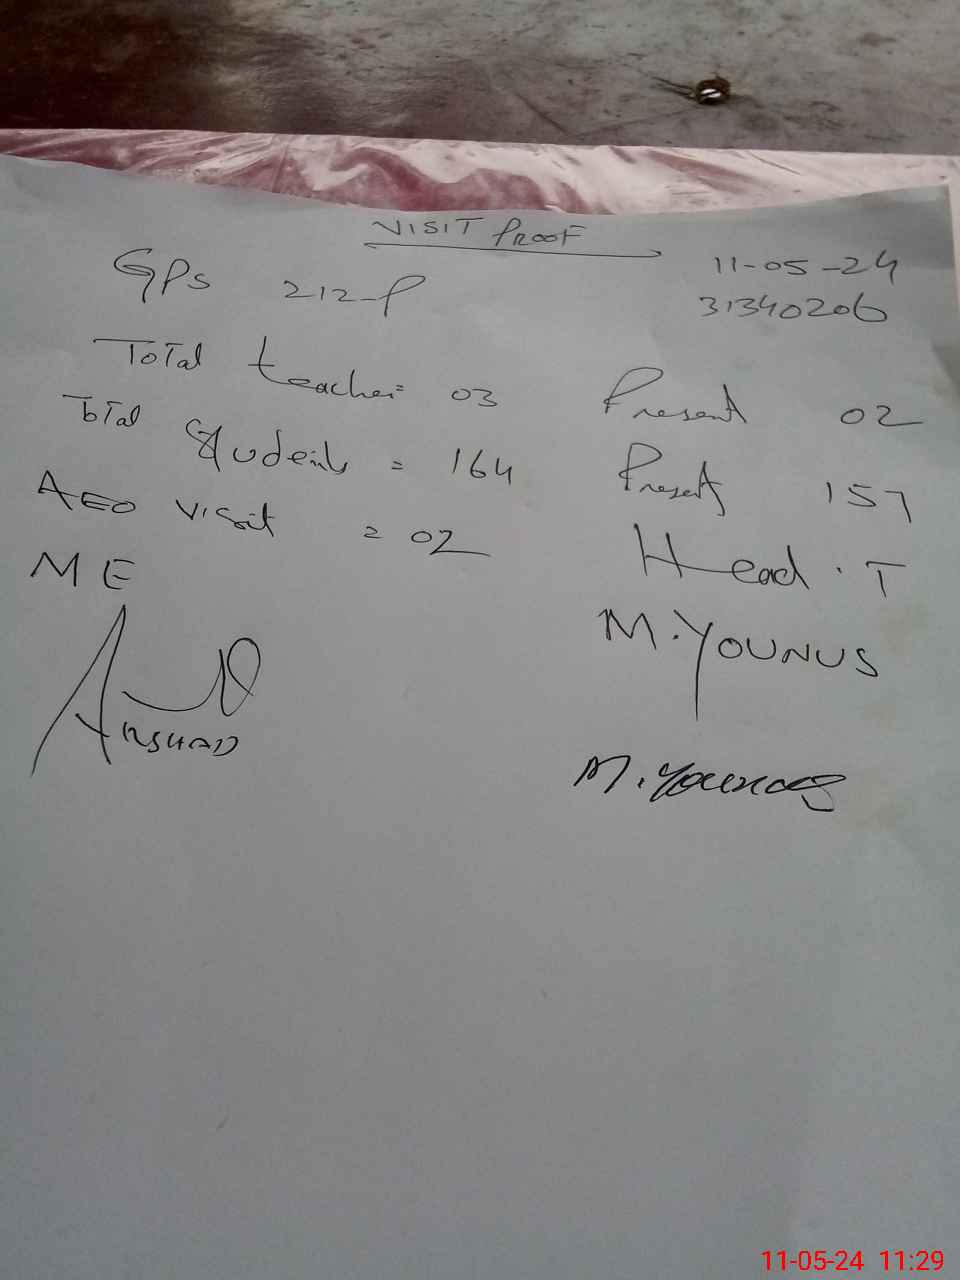 VISIT PROOF
11-05-24
GPS 212-P
31340206
Total teacher = 03 Present 02
Total Students = 164 Present 157
AEO visit = 02
Head.T
ME
M.YOUNUS
ARSHAD
M.Younas
11-05-24 11:29